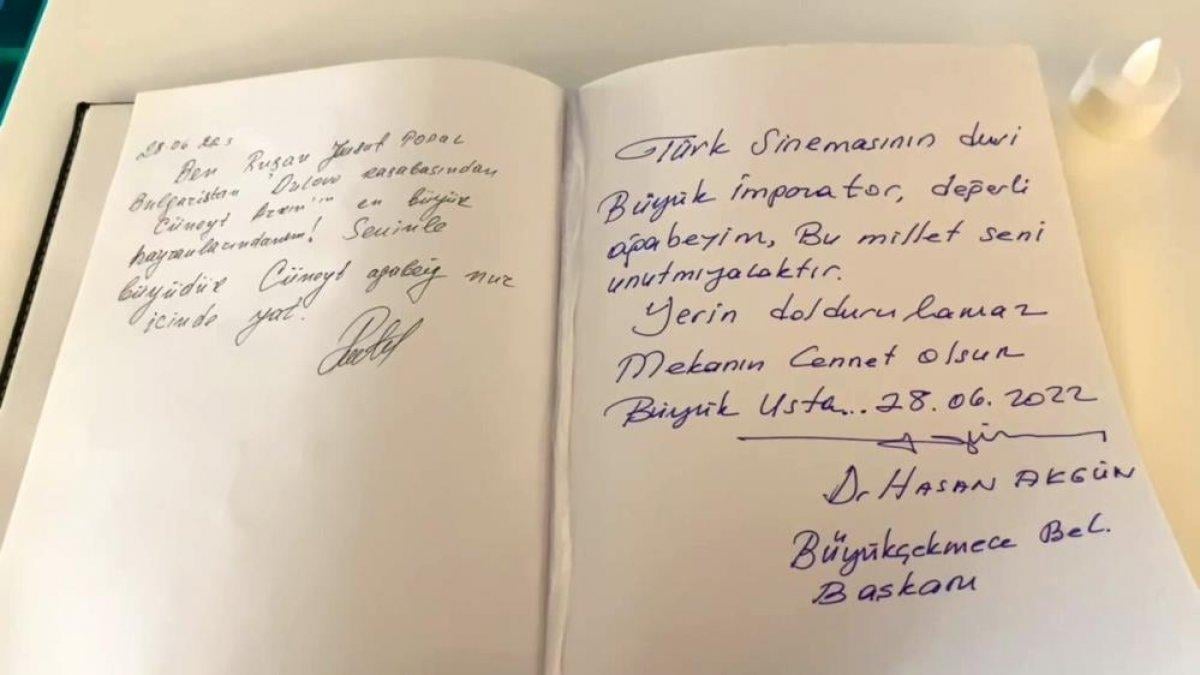 28.06.22
Ben Ruşan Yusuf
Bulgaristan Dulovo kasabasından
Cüneyt Arkın'ın en büyük
hayranlarındanım! Seninle
büyüdük Cüneyt agabeig nur
içinde yat.
Türk Sinemasının devi
Büyük İmporator, değerli
ağabeyim, Bu millet seni
unutmıyacaktır.
Yerin doldurulamaz
Mekanın Cennet olsun
Büyük Usta... 28.06.2022
Dr HASAN AKGÜN
Büyükçekmece Bel.
Başkanı